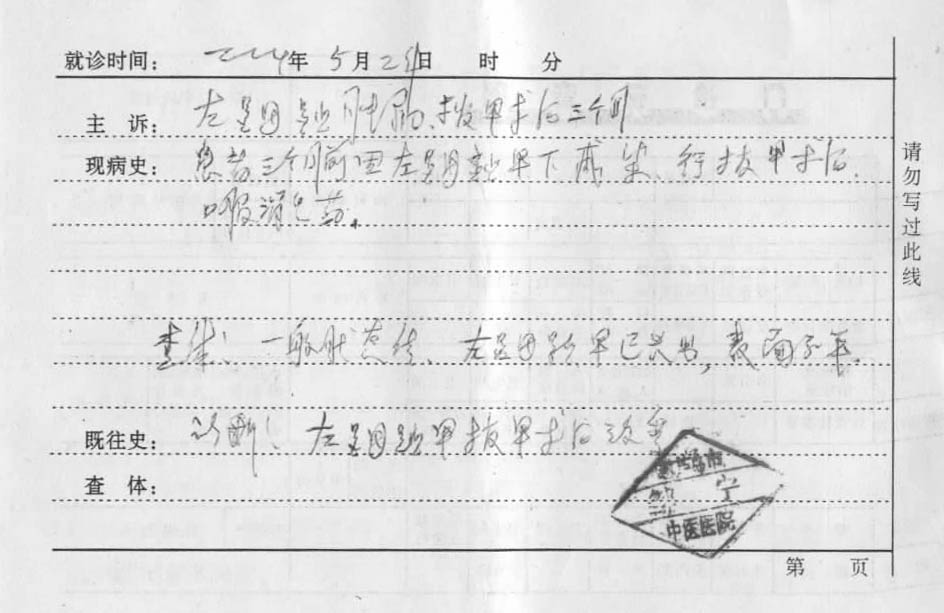 就诊时间: 年5月2 日 时 分
主 诉: 左足拇趾 拔甲术后三个月
现病史: 患者三个月前因左足拇趾甲下感染,行拔甲术后,
口服消炎药。
查体:一般状态佳、左足拇趾甲已长出,表面不平。
既往史: 诊断:左足拇趾甲拔甲术后改
查 体:
宁
中医医院
第 页
请勿写过此线